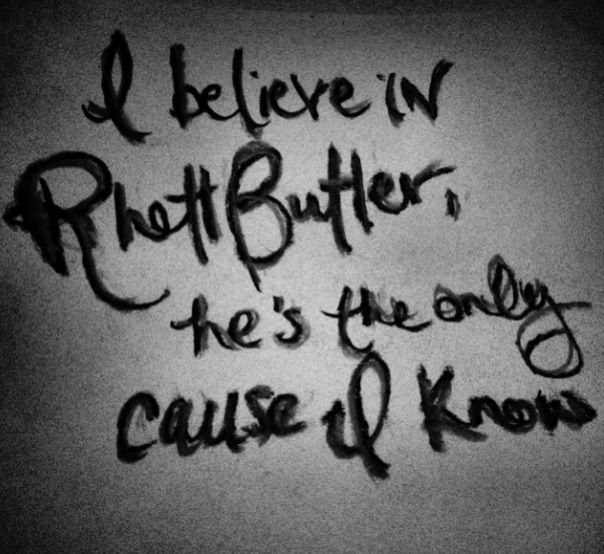 I believe iN
Rhett Butler,
he's the only
cause I know